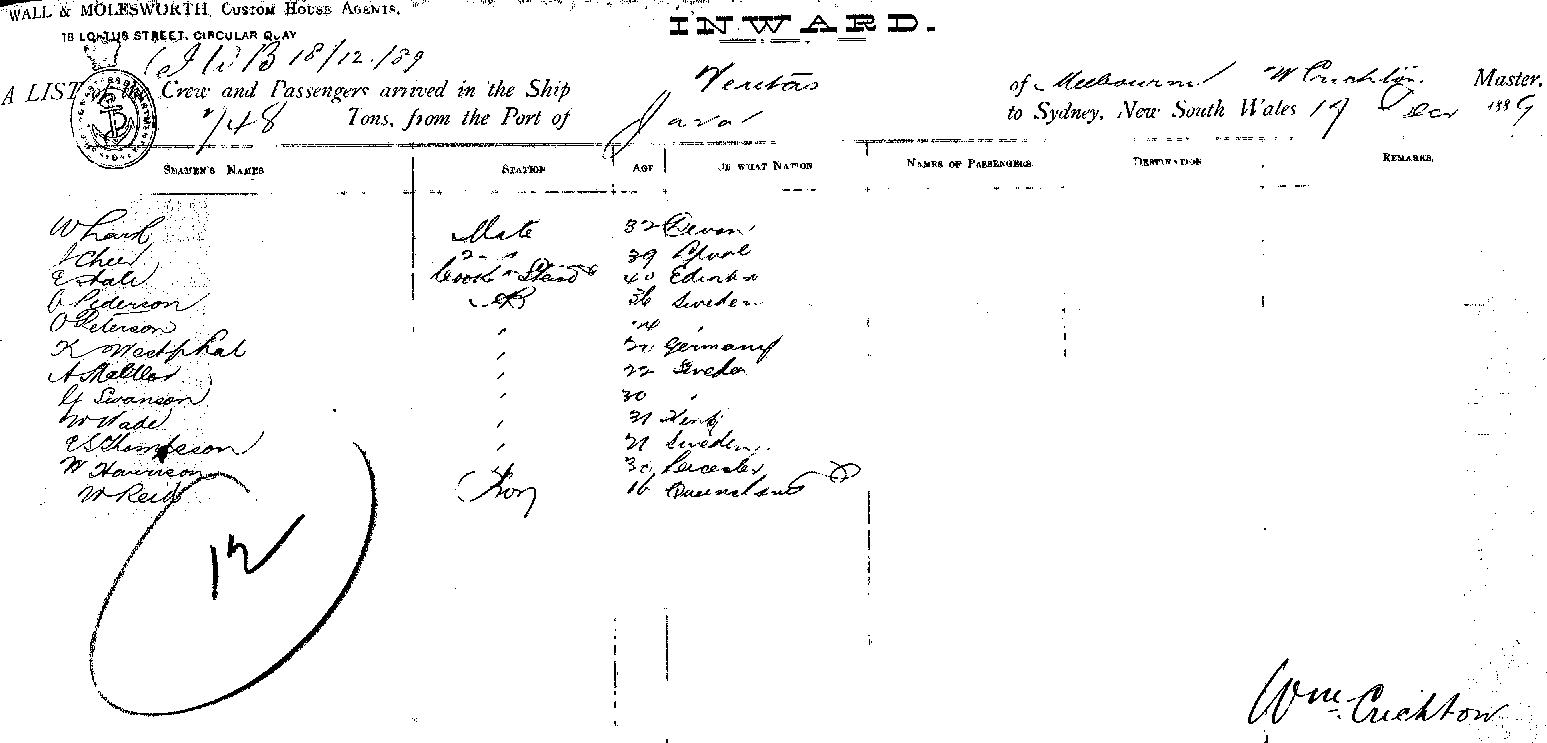 WALL & MOLESWORTH, CUSTOM HOUSE AGENTS,
18 LOFTUS STREET, CIRCULAR QUAY
INWARD.
18/12/89
A LIST of the Crew and Passengers arrived in the Ship Veritas of Melbourne W Crichton Master.
Tons, from the Port of Java to Sydney, New South Wales 17 Decr 1889
SEAMEN'S NAMES STATION AGE OF WHAT NATION NAMES OF PASSENGERS. DESTINATION REMARKS.
W Mate 32 Devon
2 " 39
E Cook & Steward 40 Edinbro
Pederson AB 36 Sweden
O Peterson " "
K Westphal " Germany
A " 22 Sweden
Swanson " 30 "
W Wade " 31 Kent
Thompson " 21 Sweden
W Harrison " 30 Leicester
W Reid Boy 16 Queensland
12
Wm. Crichton